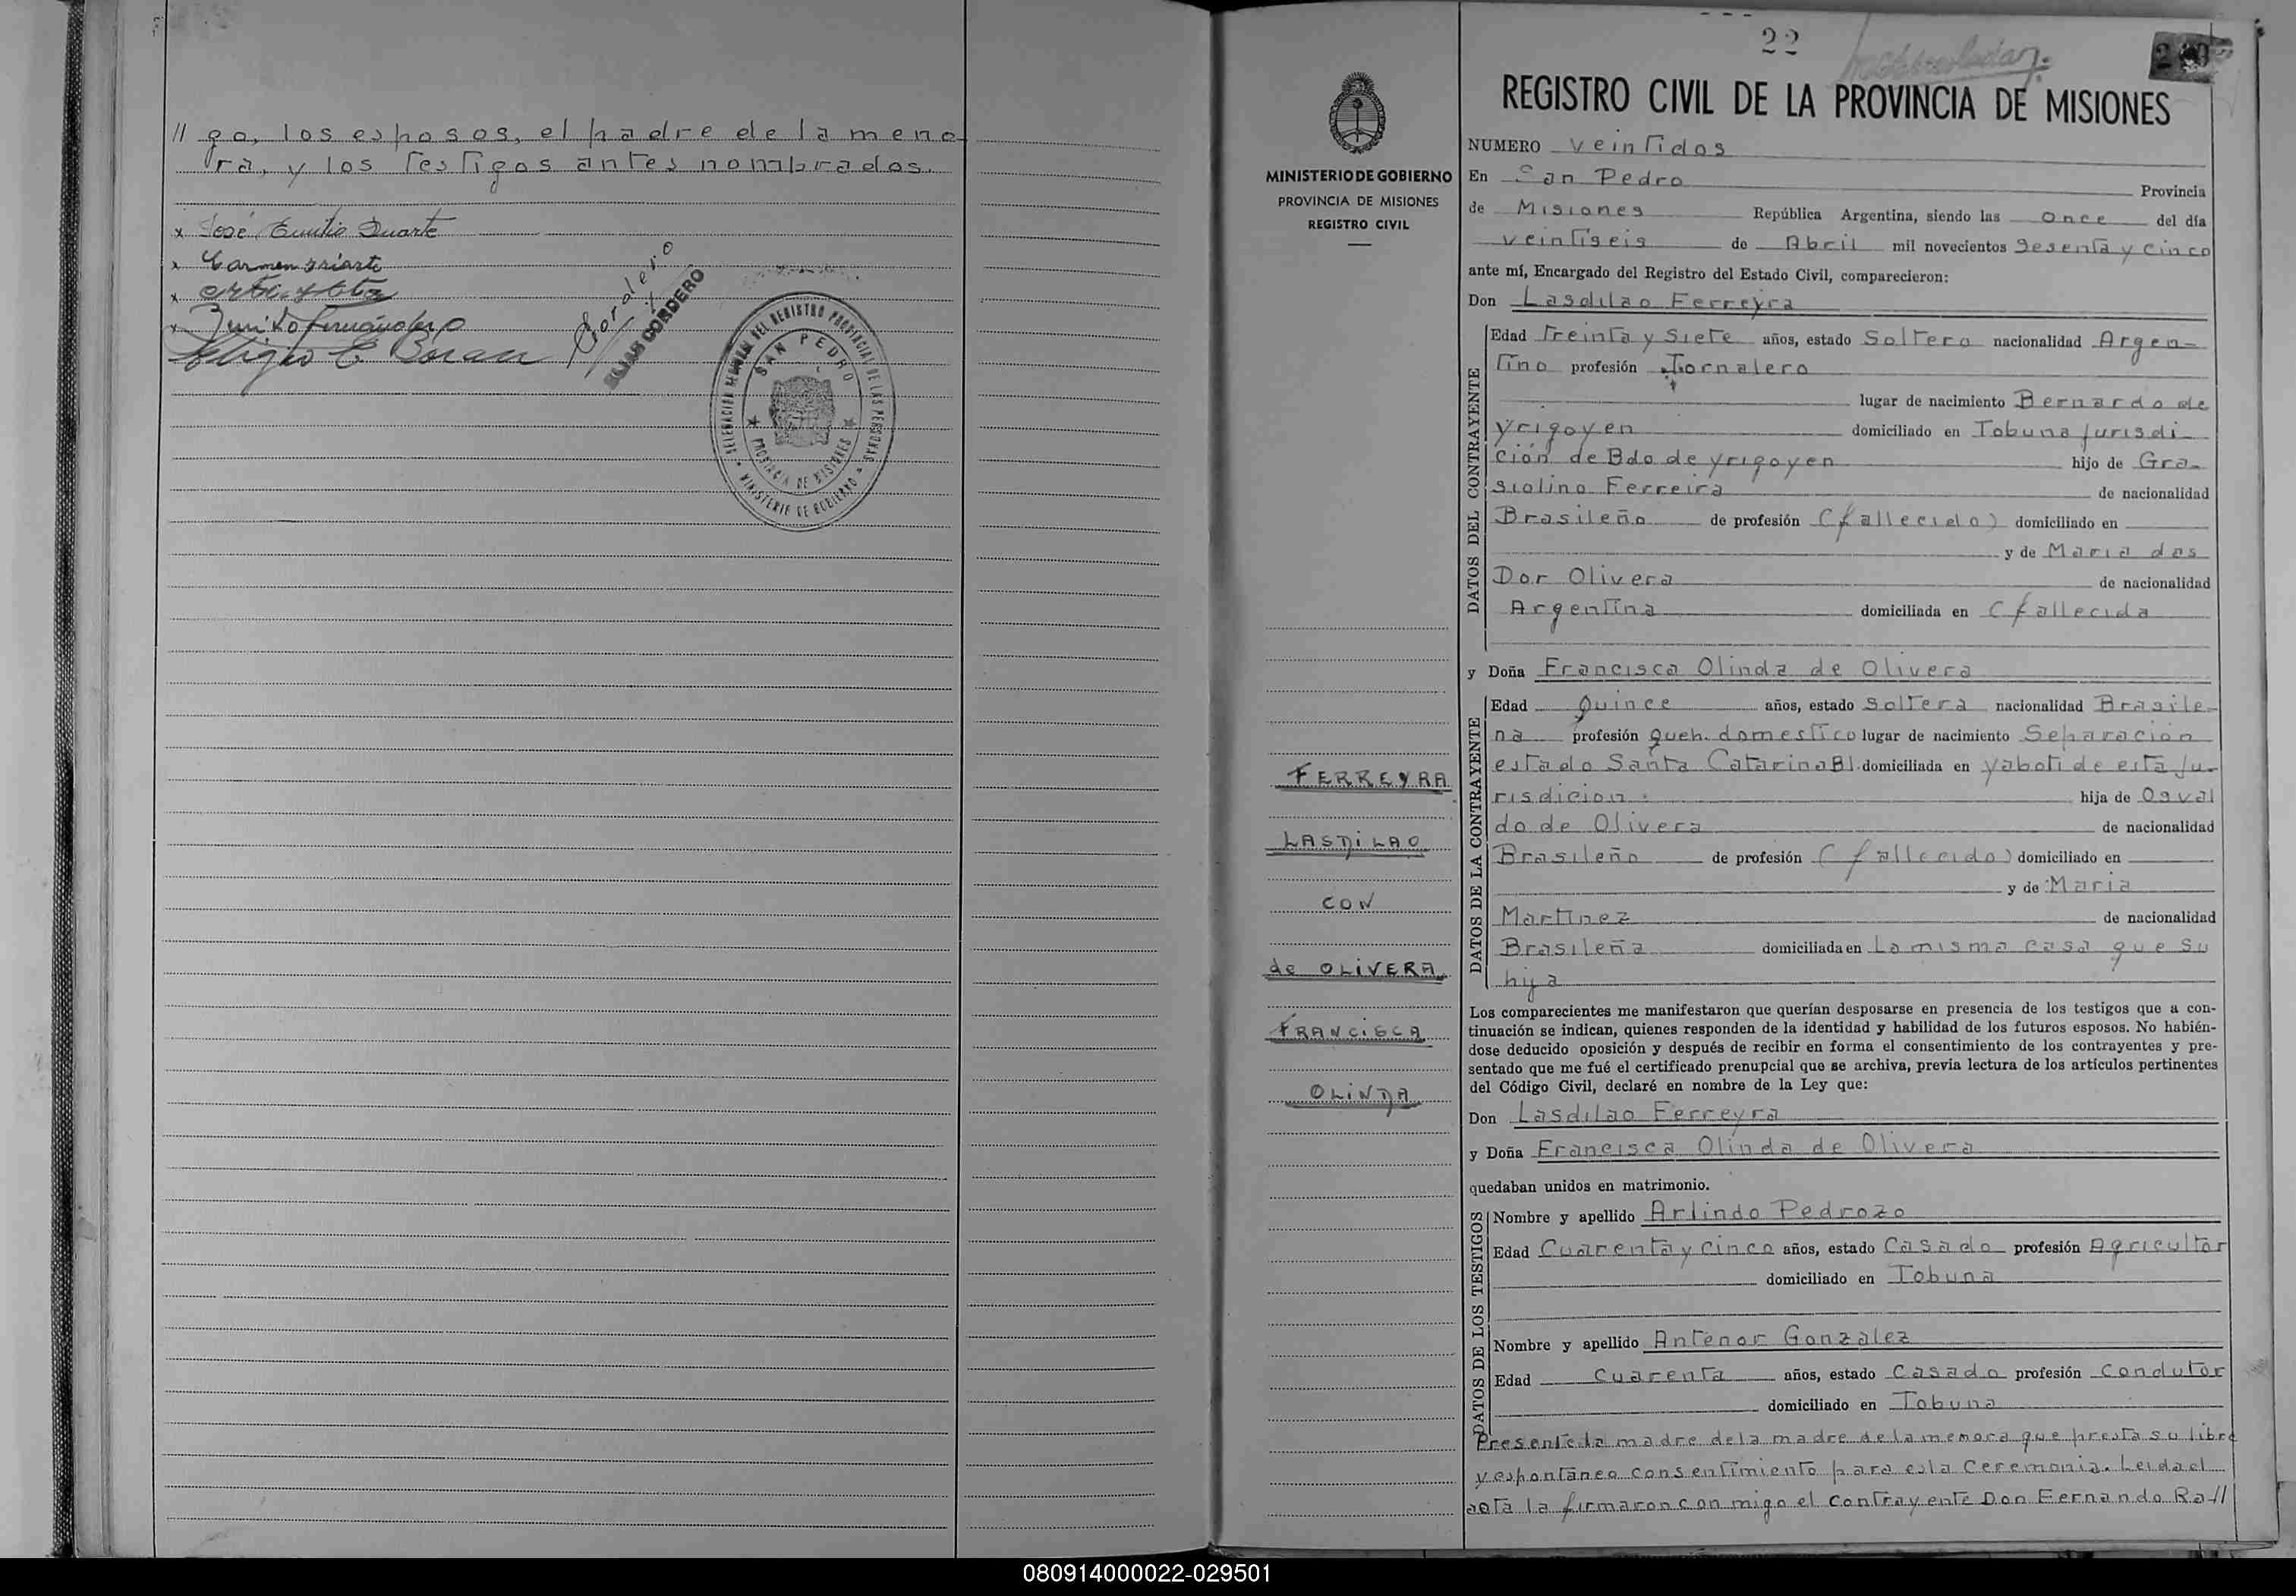 // go, los esposos, el padre de la meno-
ra, y los testigos antes nombrados.
x José Emilio Duarte
x Carmen Iriarte
x
x Benito
Cordero
ELIAS CORDERO
DEL REGISTRO PROVINCIAL DE LAS PERSONAS
SAN PEDRO
PROVINCIA DE MISIONES
MINISTERIO DE GOBIERNO
22
REGISTRO CIVIL DE LA PROVINCIA DE MISIONES
MINISTERIO DE GOBIERNO
PROVINCIA DE MISIONES
REGISTRO CIVIL
FERREYRA
LASDILAO
CON
de OLIVERA
FRANCISCA
OLINDA
NUMERO veintidos
En San Pedro Provincia
de Misiones República Argentina, siendo las once del día
veintiseis de Abril mil novecientos sesenta y cinco
ante mí, Encargado del Registro del Estado Civil, comparecieron:
Don Lasdilao Ferreyra
DATOS DEL CONTRAYENTE
Edad treinta y siete años, estado Soltero nacionalidad Argen-
tino profesión Jornalero
lugar de nacimiento Bernardo de
Yrigoyen domiciliado en Tobuna jurisdi-
ción de Bdo de yrigoyen hijo de Gra-
siolino Ferreira de nacionalidad
Brasileño de profesión (fallecido) domiciliado en
y de Maria das
Dor Olivera de nacionalidad
Argentina domiciliada en (fallecida
y Doña Francisca Olinda de Olivera
DATOS DE LA CONTRAYENTE
Edad Quince años, estado soltera nacionalidad Brasile-
na profesión queh. domestico lugar de nacimiento Separacion
estado Santa Catarina Bl. domiciliada en yaboti de esta ju-
risdicion. hija de Osval
do de Olivera de nacionalidad
Brasileño de profesión (fallecido) domiciliado en
y de Maria
Martinez de nacionalidad
Brasileña domiciliada en La misma casa que su
hija
Los comparecientes me manifestaron que querían desposarse en presencia de los testigos que a con-
tinuación se indican, quienes responden de la identidad y habilidad de los futuros esposos. No habién-
dose deducido oposición y después de recibir en forma el consentimiento de los contrayentes y pre-
sentado que me fué el certificado prenupcial que se archiva, previa lectura de los artículos pertinentes
del Código Civil, declaré en nombre de la Ley que:
Don Lasdilao Ferreyra
y Doña Francisca Olinda de Olivera
quedaban unidos en matrimonio.
DATOS DE LOS TESTIGOS
Nombre y apellido Arlindo Pedrozo
Edad Cuarenta y cinco años, estado Casado profesión Agricultor
domiciliado en Tobuna
Nombre y apellido Antenor Gonzalez
Edad Cuarenta años, estado Casado profesión Condutor
domiciliado en Tobuna
Presente la madre dela madre de la menora que presta su libre
y espontáneo consentimiento para esta Ceremonia. Leida el
acta la firmaron con migo el contrayente Don Fernando Ra//
080914000022-029501